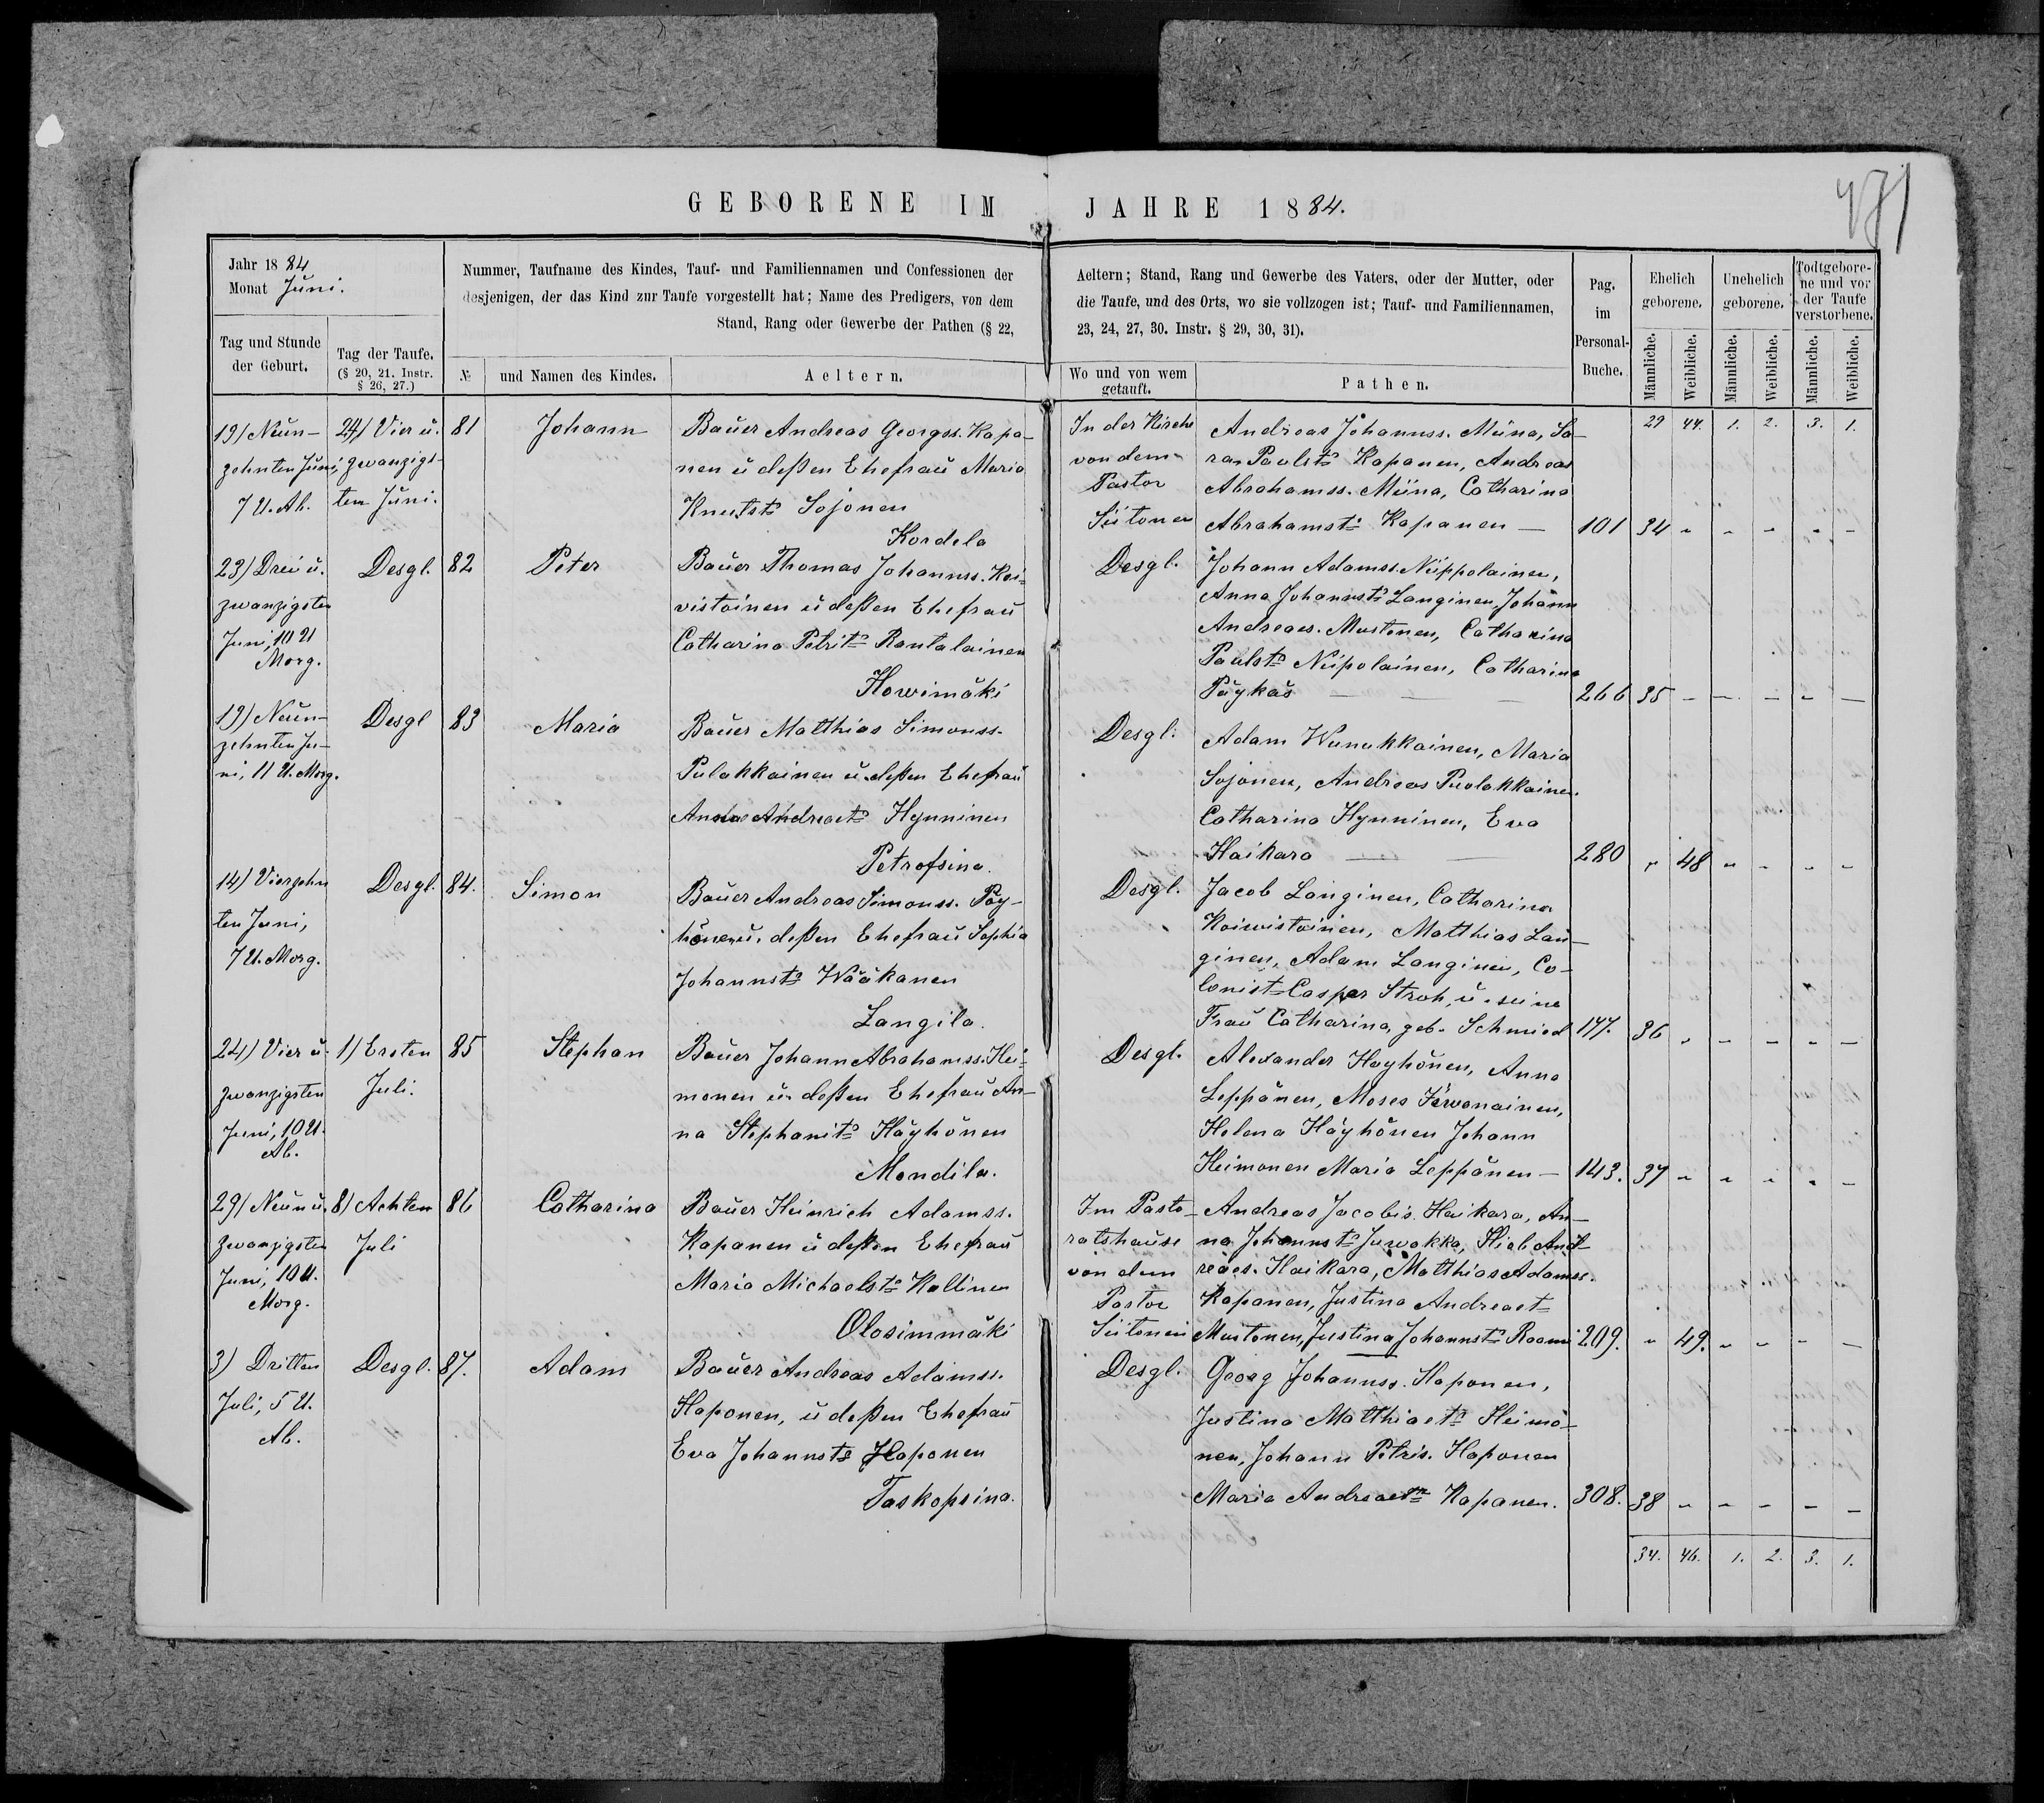 GEBORENE IM JAHRE 1884.
Jahr 1884
Monat Juni.
Nummer, Taufname des Kindes, Tauf- und Familiennamen und Confessionen der
desjenigen, der das Kind zur Taufe vorgestellt hat; Name des Predigers, von dem
Stand, Rang oder Gewerbe der Pathen (§ 22,
Aeltern; Stand, Rang und Gewerbe des Vaters, oder der Mutter, oder
die Taufe, und des Orts, wo sie vollzogen ist; Tauf- und Familiennamen,
23, 24, 27, 30. Instr. § 29, 30, 31).
Tag und Stunde
der Geburt.
Tag der Taufe.
(§ 20, 21. Instr.
§ 26, 27.)
№
und Namen des Kindes.
Aeltern.
Wo und von wem
getauft.
Pathen.
Pag.
im
Personal-
Buche.
Ehelich
geborene.
Unehelich
geborene.
Todtgebore-
ne und vor
der Taufe
verstorbene.
Männliche.
Weibliche.
Männliche.
Weibliche.
Männliche.
Weibliche.
29 44. 1. 2. 3. 1.
19) Neun-
zehnten Juni,
7 U. Ab.
24) Vier u.
zwanzigs-
ten Juni.
81
Johann
Bauer Andreas Georgss. Kapa-
nen u deßen Ehefrau Maria
Knutstr Sojonen
Kordela
In der Kirche
von dem
Pastor
Siitonen
Andreas Johannss. Miina, Sa-
ra Paulstr Kapanen, Andreas
Abrahamss. Miina, Catharina
Abrahamstr Kapanen —
101 34 - - - - -
23) Drei u.
zwanzigsten
Juni, 10 U
Morg.
Desgl.
82
Peter
Bauer Thomas Johannss. Koi-
vistoinen u deßen Ehefrau
Catharina Petritr Rantalainen
Howimäki
Desgl.
Johann Adamss. Niippolainen,
Anna Johannstr Langinen, Johann
Andreaes. Mustonen, Catharina
Paulstr Niipolainen, Catharina
Päykäs — — —
266 35 - - - - -
19) Neun-
zehnten Ju-
ni, 11 U. Morg.
Desgl
83
Maria
Bauer Matthias Simonss.
Pulakkainen u. deßen Ehefrau
Anna Andreaetr Hynninen
Petrofsina.
Desgl.
Adam Wunukkainen, Maria
Sojonen, Andreas Puolakkainen.
Catharina Hynninen, Eva
Haikara — —
280 - 48 - - - -
14) Vierzehn
ten Juni,
7 U. Morg.
Desgl.
84.
Simon
Bauer Andreas Simonss. Pöy-
hönen u. deßen Ehefrau Sophia
Johannstr Wääkanen
Langila.
Desgl.
Jacob Langinen, Catharina
Koiwistoinen, Matthias Lan-
ginen, Adam Langinen, Co-
lonist Casper Stroh, u. seine
Frau Catharina, geb. Schmied
177. 36 - - - - -
24) Vier u.
zwanzigsten
Juni, 10 U.
Ab.
1) Ersten
Juli.
85
Stephan
Bauer Johann Abrahamss. Hei-
monen u. deßen Ehefrau An-
na Stephanitr Häyhönen
Mondila.
Desgl.
Alexander Hayhönen, Anna
Leppänen, Moses Järwenainen,
Helena Häyhönen Johann
Heimonen Maria Leppänen —
143. 37 - - - - -
29) Neun u.
zwanzigsten
Juni, 10 U.
Morg.
8) Achten
Juli
86
Catharina
Bauer Heinrich Adamss.
Kapanen u deßen Ehefrau
Maria Michaelstr Kallinen
Olosimmäki
Im Pasto-
ratshause
von dem
Pastor
Siitonen
Andreas Jacobis. Haikara, An-
na Johannstr Juwakka, Hiob And-
reaes. Haikara, Matthias Adamss.
Kapanen, Justina Andreaetr
Mustonen, Justina Johannstr Raami
209. - 49. - - - -
3) Dritten
Juli, 5 U.
Ab.
Desgl.
87.
Adam
Bauer Andreas Adamss.
Haponen, u deßen Ehefrau
Eva Johannstr Haponen
Taskopsina.
Desgl.
Georg Johannss. Haponen,
Justina Matthiaetr Heimo-
nen, Johann Petris. Haponen
Maria Andreaetr Kapanen.
308. 38 - - - - -
34. 46. 1. 2. 3. 1.